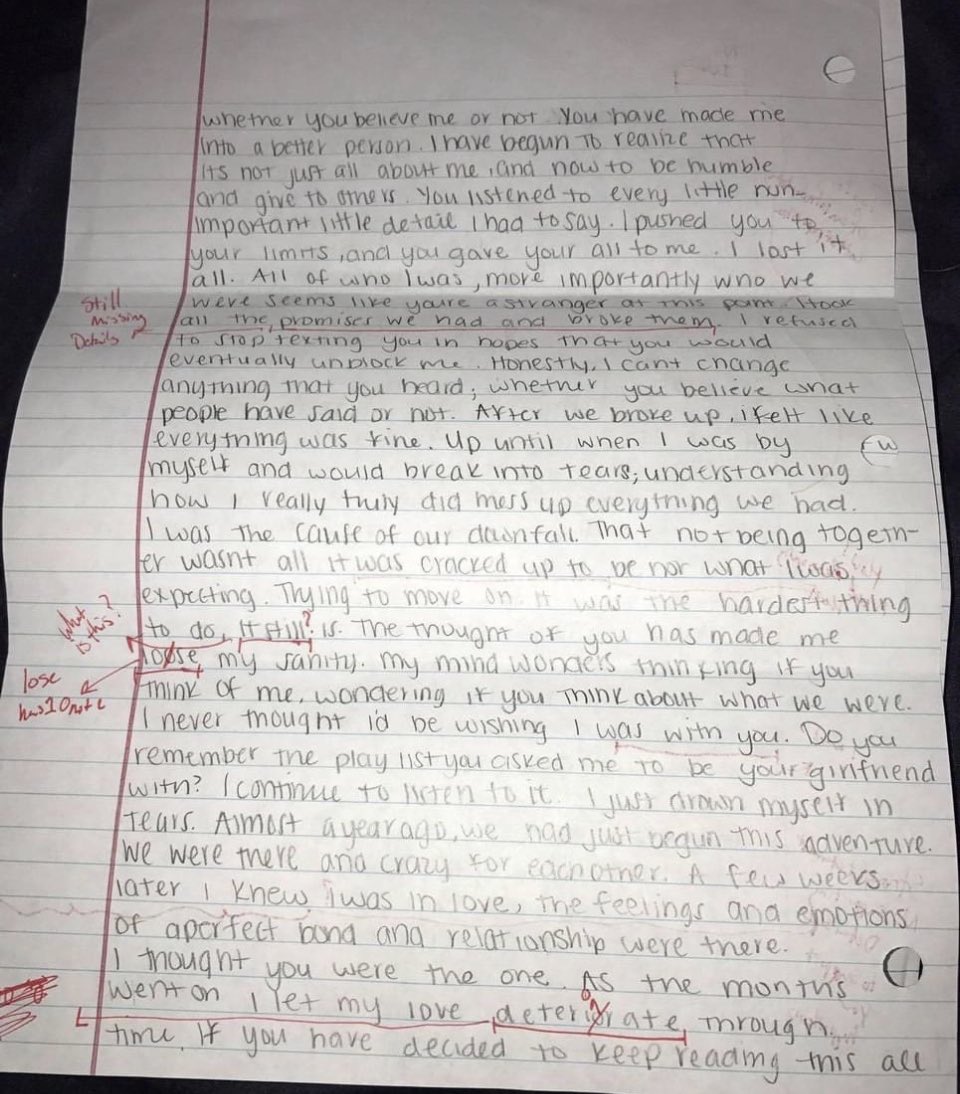 whether you believe me or not You have made me
into a better person. I have begun to realize that
its not just all about me, and how to be humble
and give to others. You listened to every little nun-
important little detail I had to say. I pushed you to
your limits, and you gave your all to me. I lost it
all. All of who I was, more importantly who we
were seems like youre a stranger at this point. I took
Still
Missing
Details
all the promises we had and broke them, I refused
to stop texting you in hopes that you would
eventually unblock me. Honestly, I cant change
anything that you heard; whether you believe what
people have said or not. After we broke up, i felt like
everything was fine. Up until when I was by
myself and would break into tears; understanding
how I really truly did mess up everything we had.
I was the cause of our downfall. That not being togeth-
er wasnt all it was cracked up to be nor what I was
expecting. Trying to move on it was the hardest thing
what is this?
to do, it still? is. The thought of you has made me
loose my sanity. My mind wonders thinking if you
lose
has 1 O not 2
think of me, wondering if you think about what we were.
I never thought i'd be wishing I was with you. Do you
remember the play list you asked me to be your girlfriend
with? I continue to listen to it. I just drown myself in
tears. Almost a year ago, we had just begun this adventure.
We were there and crazy for eachother. A few weeks
later I knew i was in love, the feelings and emotions
of a perfect bond and relationship were there.
I thought you were the one. As the months
went on I let my love, deteriorate, through
time. If you have decided to keep reading this all